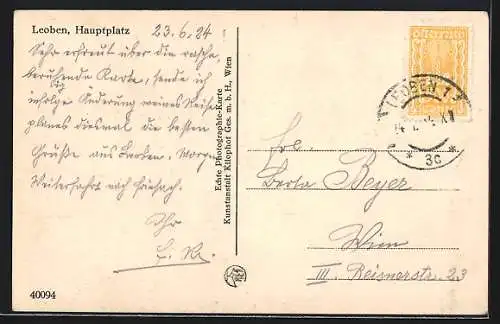 Leoben, Hauptplatz
23.6.24
Sehr erfreut über die rasche,
beruhende Karte, sende ich
infolge Änderung meines Reise-
planes diesmal die besten
Grüße aus Leoben. Morgen
Weiterfahrt nach Friesach.
Ihr
40094
Echte Photographie-Karte
Kunstanstalt Kilophot Ges. m. b. H., Wien
LEOBEN 1
* 3c *
Frl.
Berta Beyer
Wien
III. Reisnerstr. 23